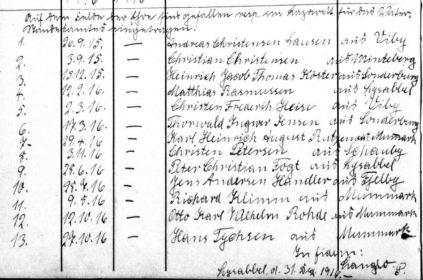 Auf dem Felde der Ehre sind gefallen resp. im Lazarett für das Vater-
1. 26.9.15. — Andreas Christensen Lausen aus Viby
2. 3.9.15. — Christian Christensen aus Minteberg
3. 13.12.15. — Heinrich Jacob Thomas Koster aus Sonderburg
4. 12.2.16. — Matthias Rasmussen aus Lysabbel
5. 2.3.16. — Christen Frederik Heise aus Viby
6. 17.3.16. — Thorwald Ingwer Jensen aus Sonderburg
7. 29.4.16 — Karl Heinrich August aus Mummark
8. 3.11.16 — Christen Petersen aus
9. 28.6.16 — Peter Christian Fogt aus Lysabbel
10. — Jens Andersen Handler aus Fjelby
11. 9.7.16 — Richard Klimm aus Mummark
12. 19.10.16 — Otto Karl Wilhelm Rohde aus Mummark
13. 24.10.16 — Hans Tychsen aus Mummark
In fidem:
Lysabbel, d. 31. Dez. 1916.